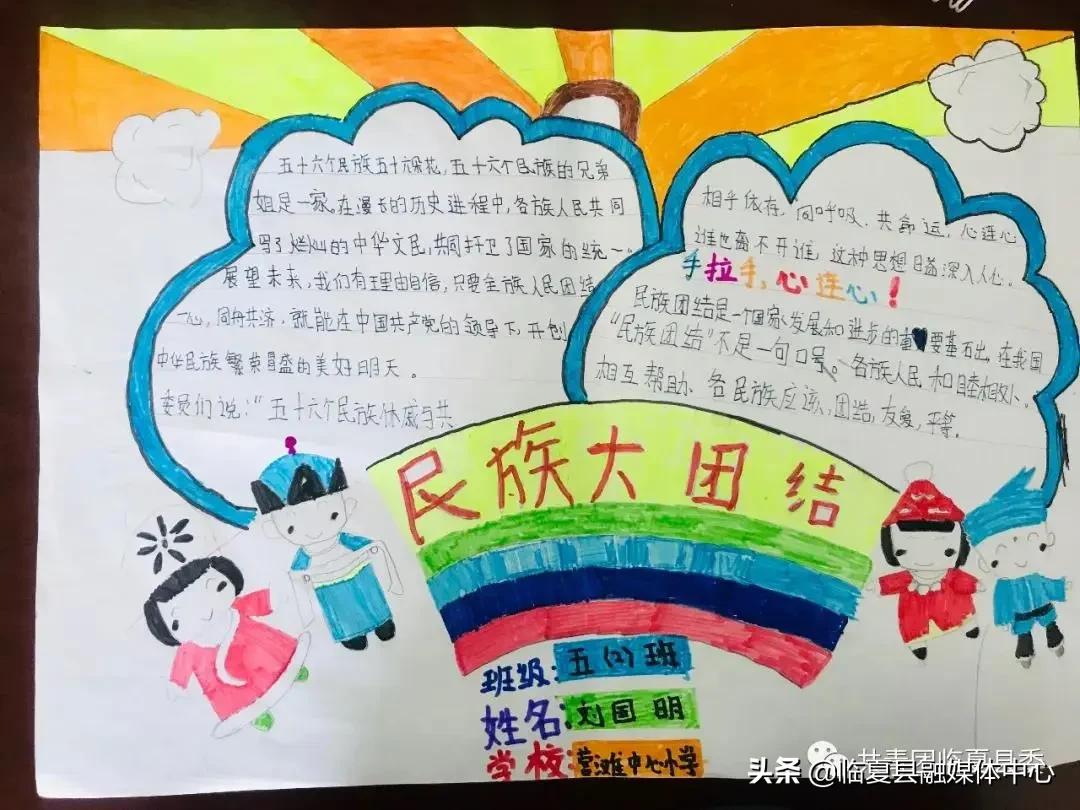 五十六个民族五十六朵花,五十六个民族的兄弟
姐是一家。在漫长的历史进程中,各族人民共同
写了灿烂的中华文民,共同扞卫了国家的统一。
展望未来,我们有理由自信,只要全族人民团结
一心,同舟共济,就能在中国共产党的领导下,开创
中华民族繁荣昌盛的美好明天。
委员们说:"五十六个民族休戚与共
相乎依存,同呼吸、共命运,心连心
谁也离不开谁,这种思想日益深入人心。
手拉手,心连心!
民族团结是一个国家发展和进步的重要基石出,在我国
"民族团结"不是一句口号。各族人民和睦相处、
相互帮助、各民族应该,团结,友爱,平等。
民族大团结
班级:五(2)班
姓名:刘国明
学校:营滩中心小学
共青团临夏县委
头条 @临夏县融媒体中心